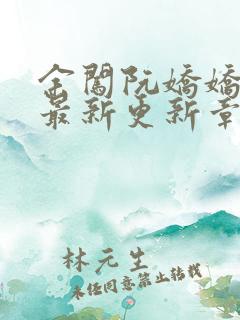 金闔阮嬌嬌
最新更新章
林元生
未经同意禁止转载